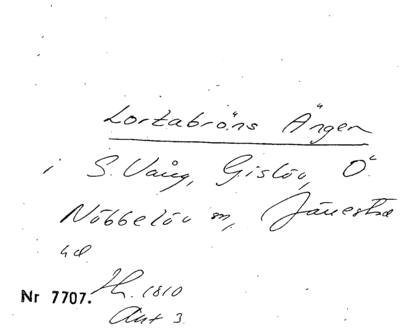 Lortabröns Ängen
i S. Vång, Gislöv, Ö
Nöbbelöv sn, Järrestad
hd
Nr 7707. Th. 1810
Akt 3